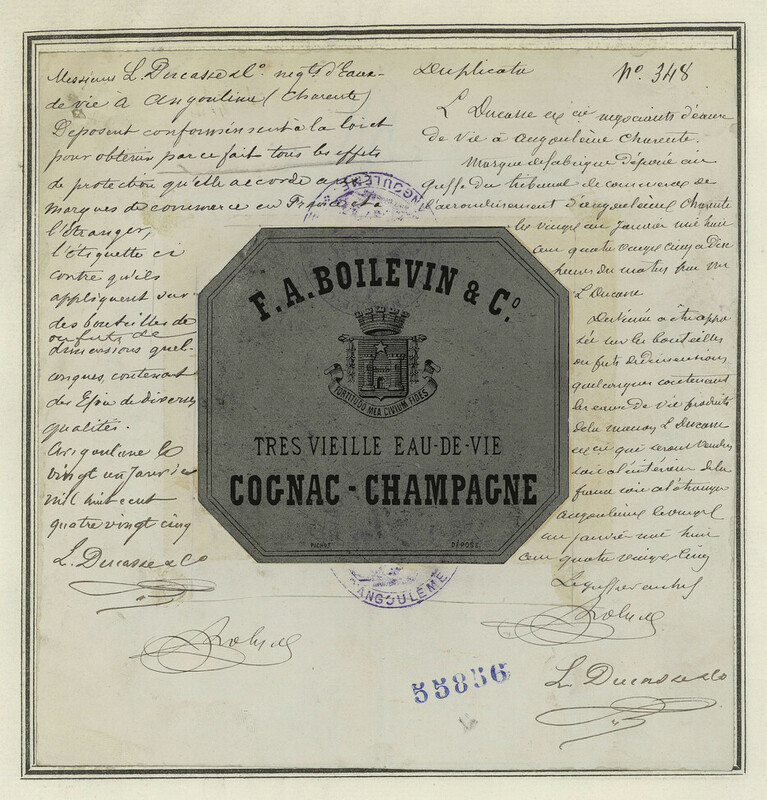 Messieurs L. Ducasse & Co. negts d'Eaux-
de vie à Angoulême (Charente)
Deposent conformément à la loi et
pour obtenir par ce fait tous les effets
de protection qu'elle accorde aux
marques de commerce en France et à
l'étranger,
l'étiquette ci
contre qu'ils
appliquent sur
des bouteilles de
ou futs de
dimensions quel-
conques, contenant
des Esprits de diverses
qualités.
Angoulême le
vingt un Janvier
mil huit cent
quatre vingt cinq
L. Ducasse & Co
Duplicata
No. 348
L Ducasse et cie negociants d'eaux
de vie à angoulême Charente.
Marque de fabrique Deposée au
greffe du tribunal de commerce de
l'arrondissement d'angoulême Charente
le vingt un Janvier mil huit
cent quatre vingt cinq à dix
heures du matin par Mr
L Ducasse
Destinée à être appo
sée sur les bouteilles
ou futs de dimensions
quelconques contenant
les eaux de vie produits
de la maison L Ducasse
et cie qui seront vendus
soit à l'intérieur de la
france soit à l'étranger
angoulême le vingt
un janvier mil huit
cent quatre vingt cinq
Le greffier en chef
L. Ducasse & Co
ANGOULÊME
F. A. BOILEVIN & Co.
FORTITUDO MEA CIVIUM FIDES
TRES VIEILLE EAU-DE-VIE
COGNAC - CHAMPAGNE
DÉPOSÉ
ANGOULÊME
55856